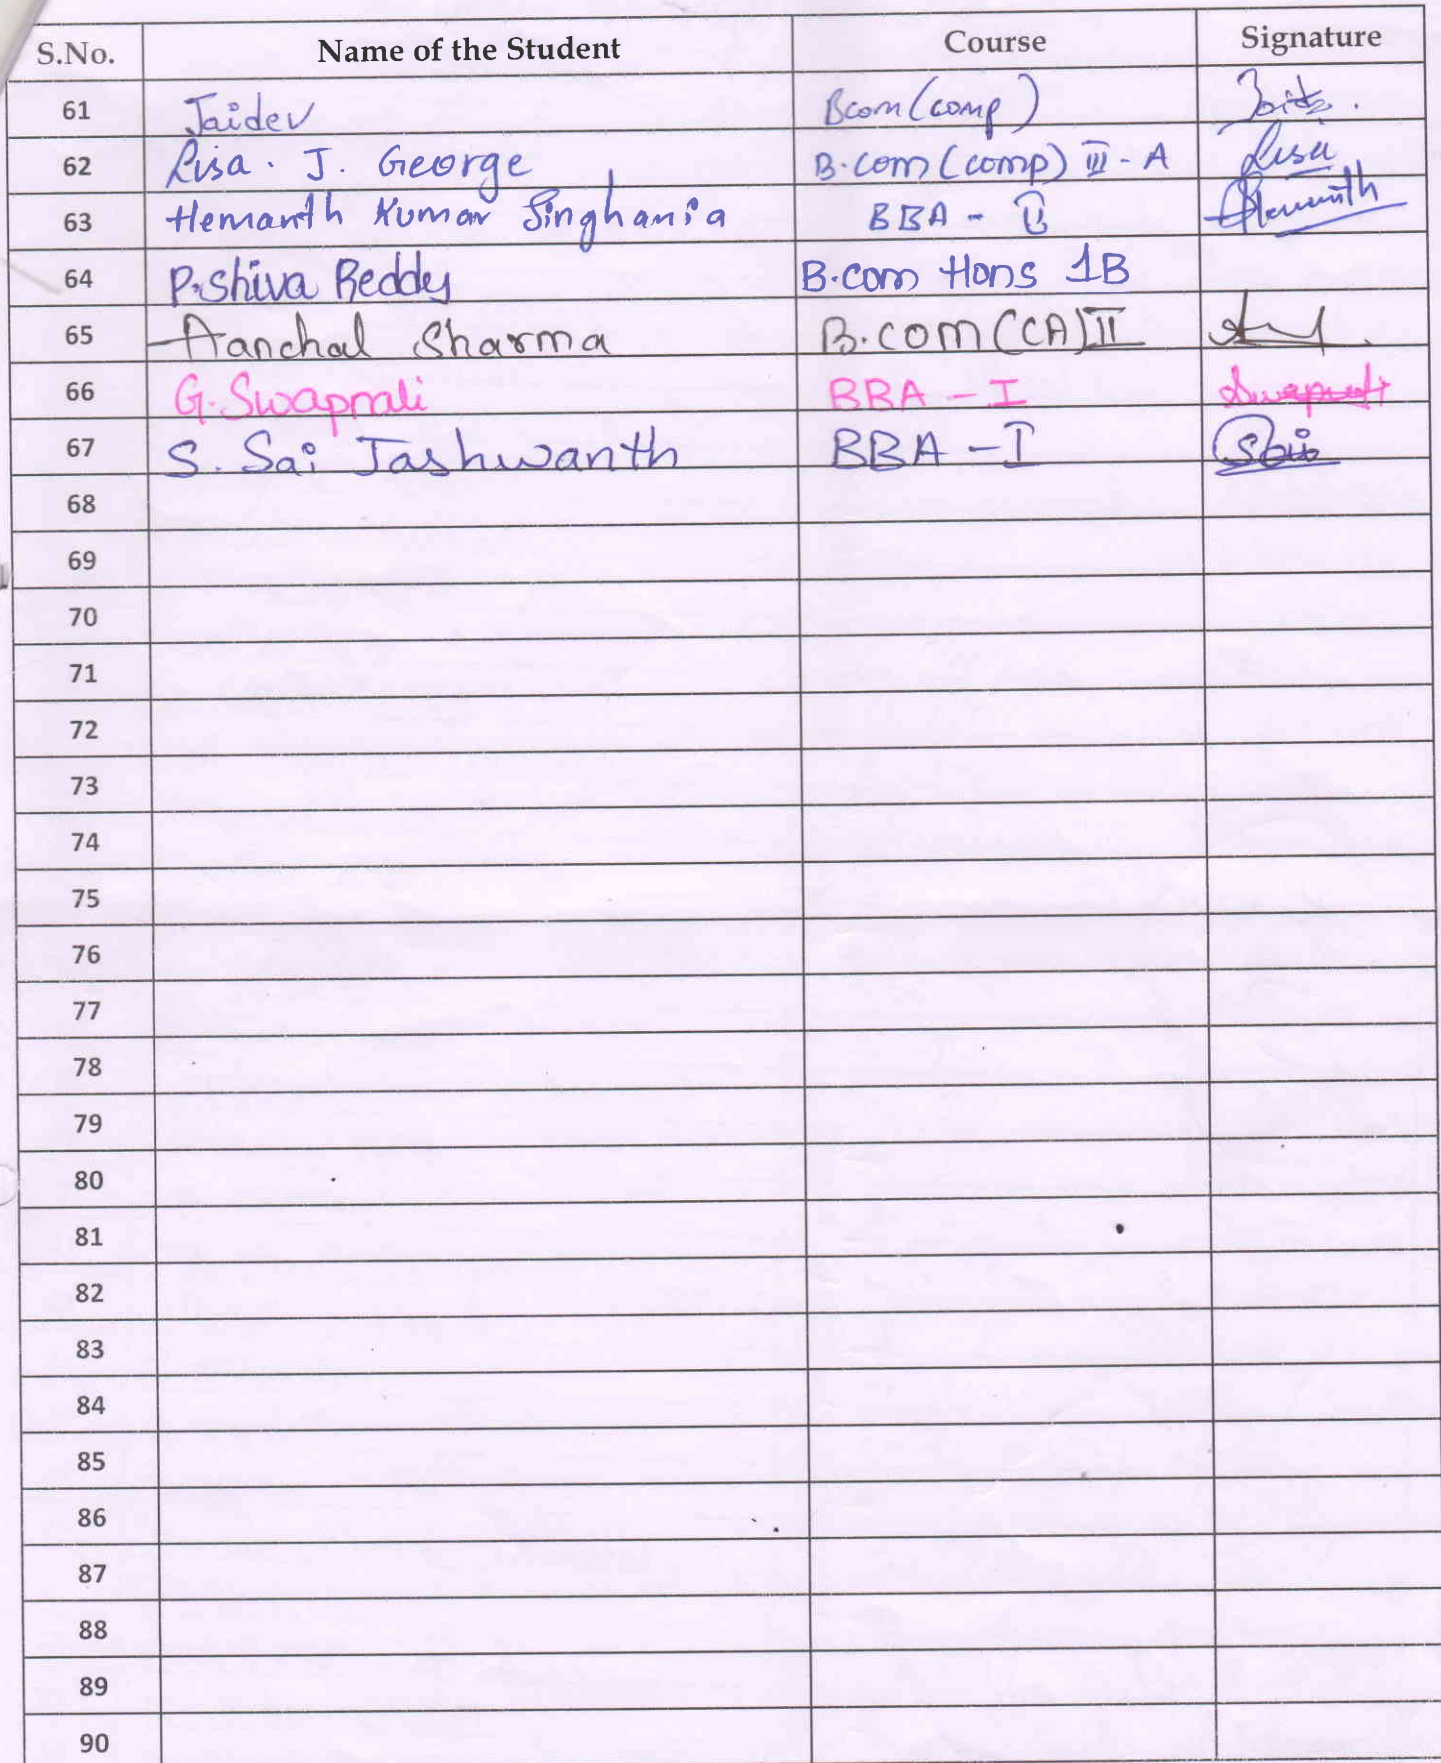 S.No. Name of the Student Course Signature
61 Jaidev Bcom (comp)
62 Lisa. J. George B.com (comp) III - A Lisa
63 Hemanth Kumar Singhania BBA - II Hemanth
64 P. Shiva Reddy B.com Hons 1B
65 Aanchal Sharma B.com (CA) II
66 G. Swapnali BBA - I Swapnali
67 S. Sai Jashwanth BBA - I Sai
68
69
70
71
72
73
74
75
76
77
78
79
80
81
82
83
84
85
86
87
88
89
90